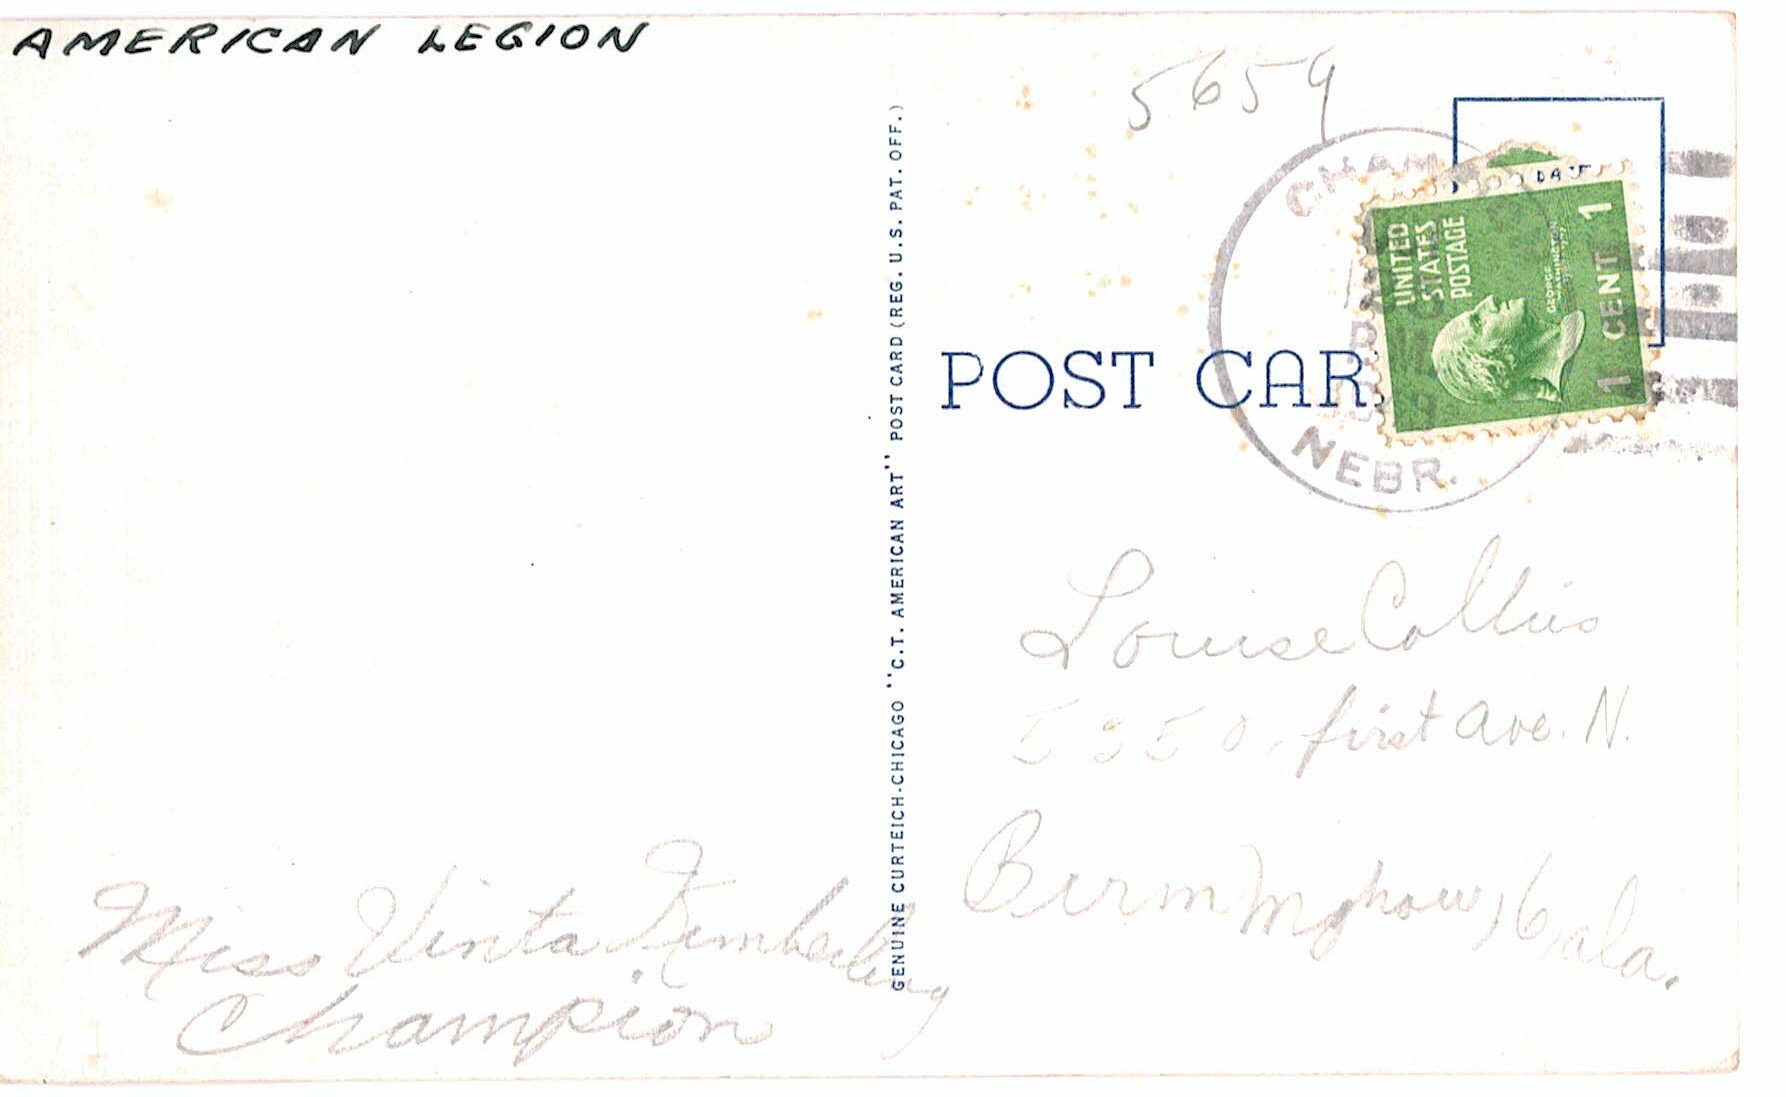 AMERICAN LEGION
5659
CHAM
NEBR.
UNITED
STATES
POSTAGE
GEORGE
WASHINGTON
1 CENT 1
POST CAR
GENUINE CURTEICH-CHICAGO "C.T. AMERICAN ART" POST CARD (REG. U.S. PAT. OFF.)
Louise Collins
5350, first ave. N.
Birmingham, 6, ala.
Miss Vinta Kimberling
Champion